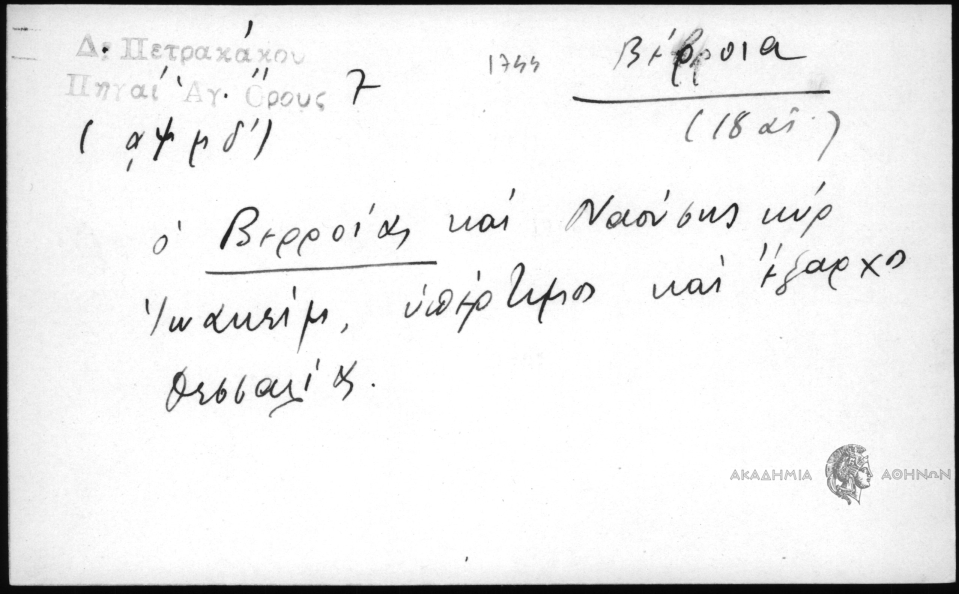 Δ. Πετρακάκου
Πηγαί Ἁγ. Ὄρους 7
1744
Βέρροια
(18 αἰ.)
(αψμδ')
ὁ Βερροίας καί Ναούσης κύρ
Ἰωακείμ, ὑπέρτιμος καί ἔξαρχος
Θεσσαλίας.
ΑΚΑΔΗΜΙΑ ΑΘΗΝΩΝ